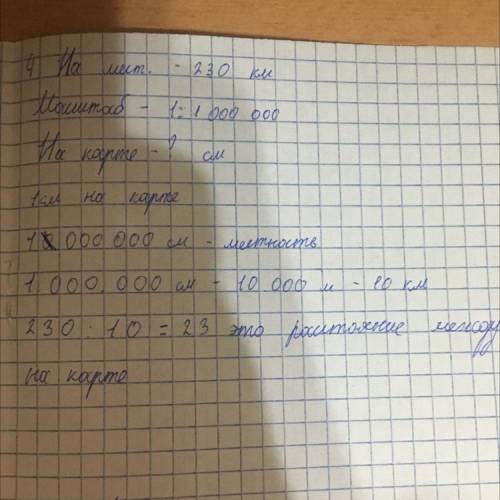 4 На мест. - 230 км
Масштаб - 1:1 000 000
На карте - ? см
1см на карте
1 000 000 см - местность
1.000.000 см - 10 000 м - 10 км
230 · 10 = 23 это растояние между
на карте